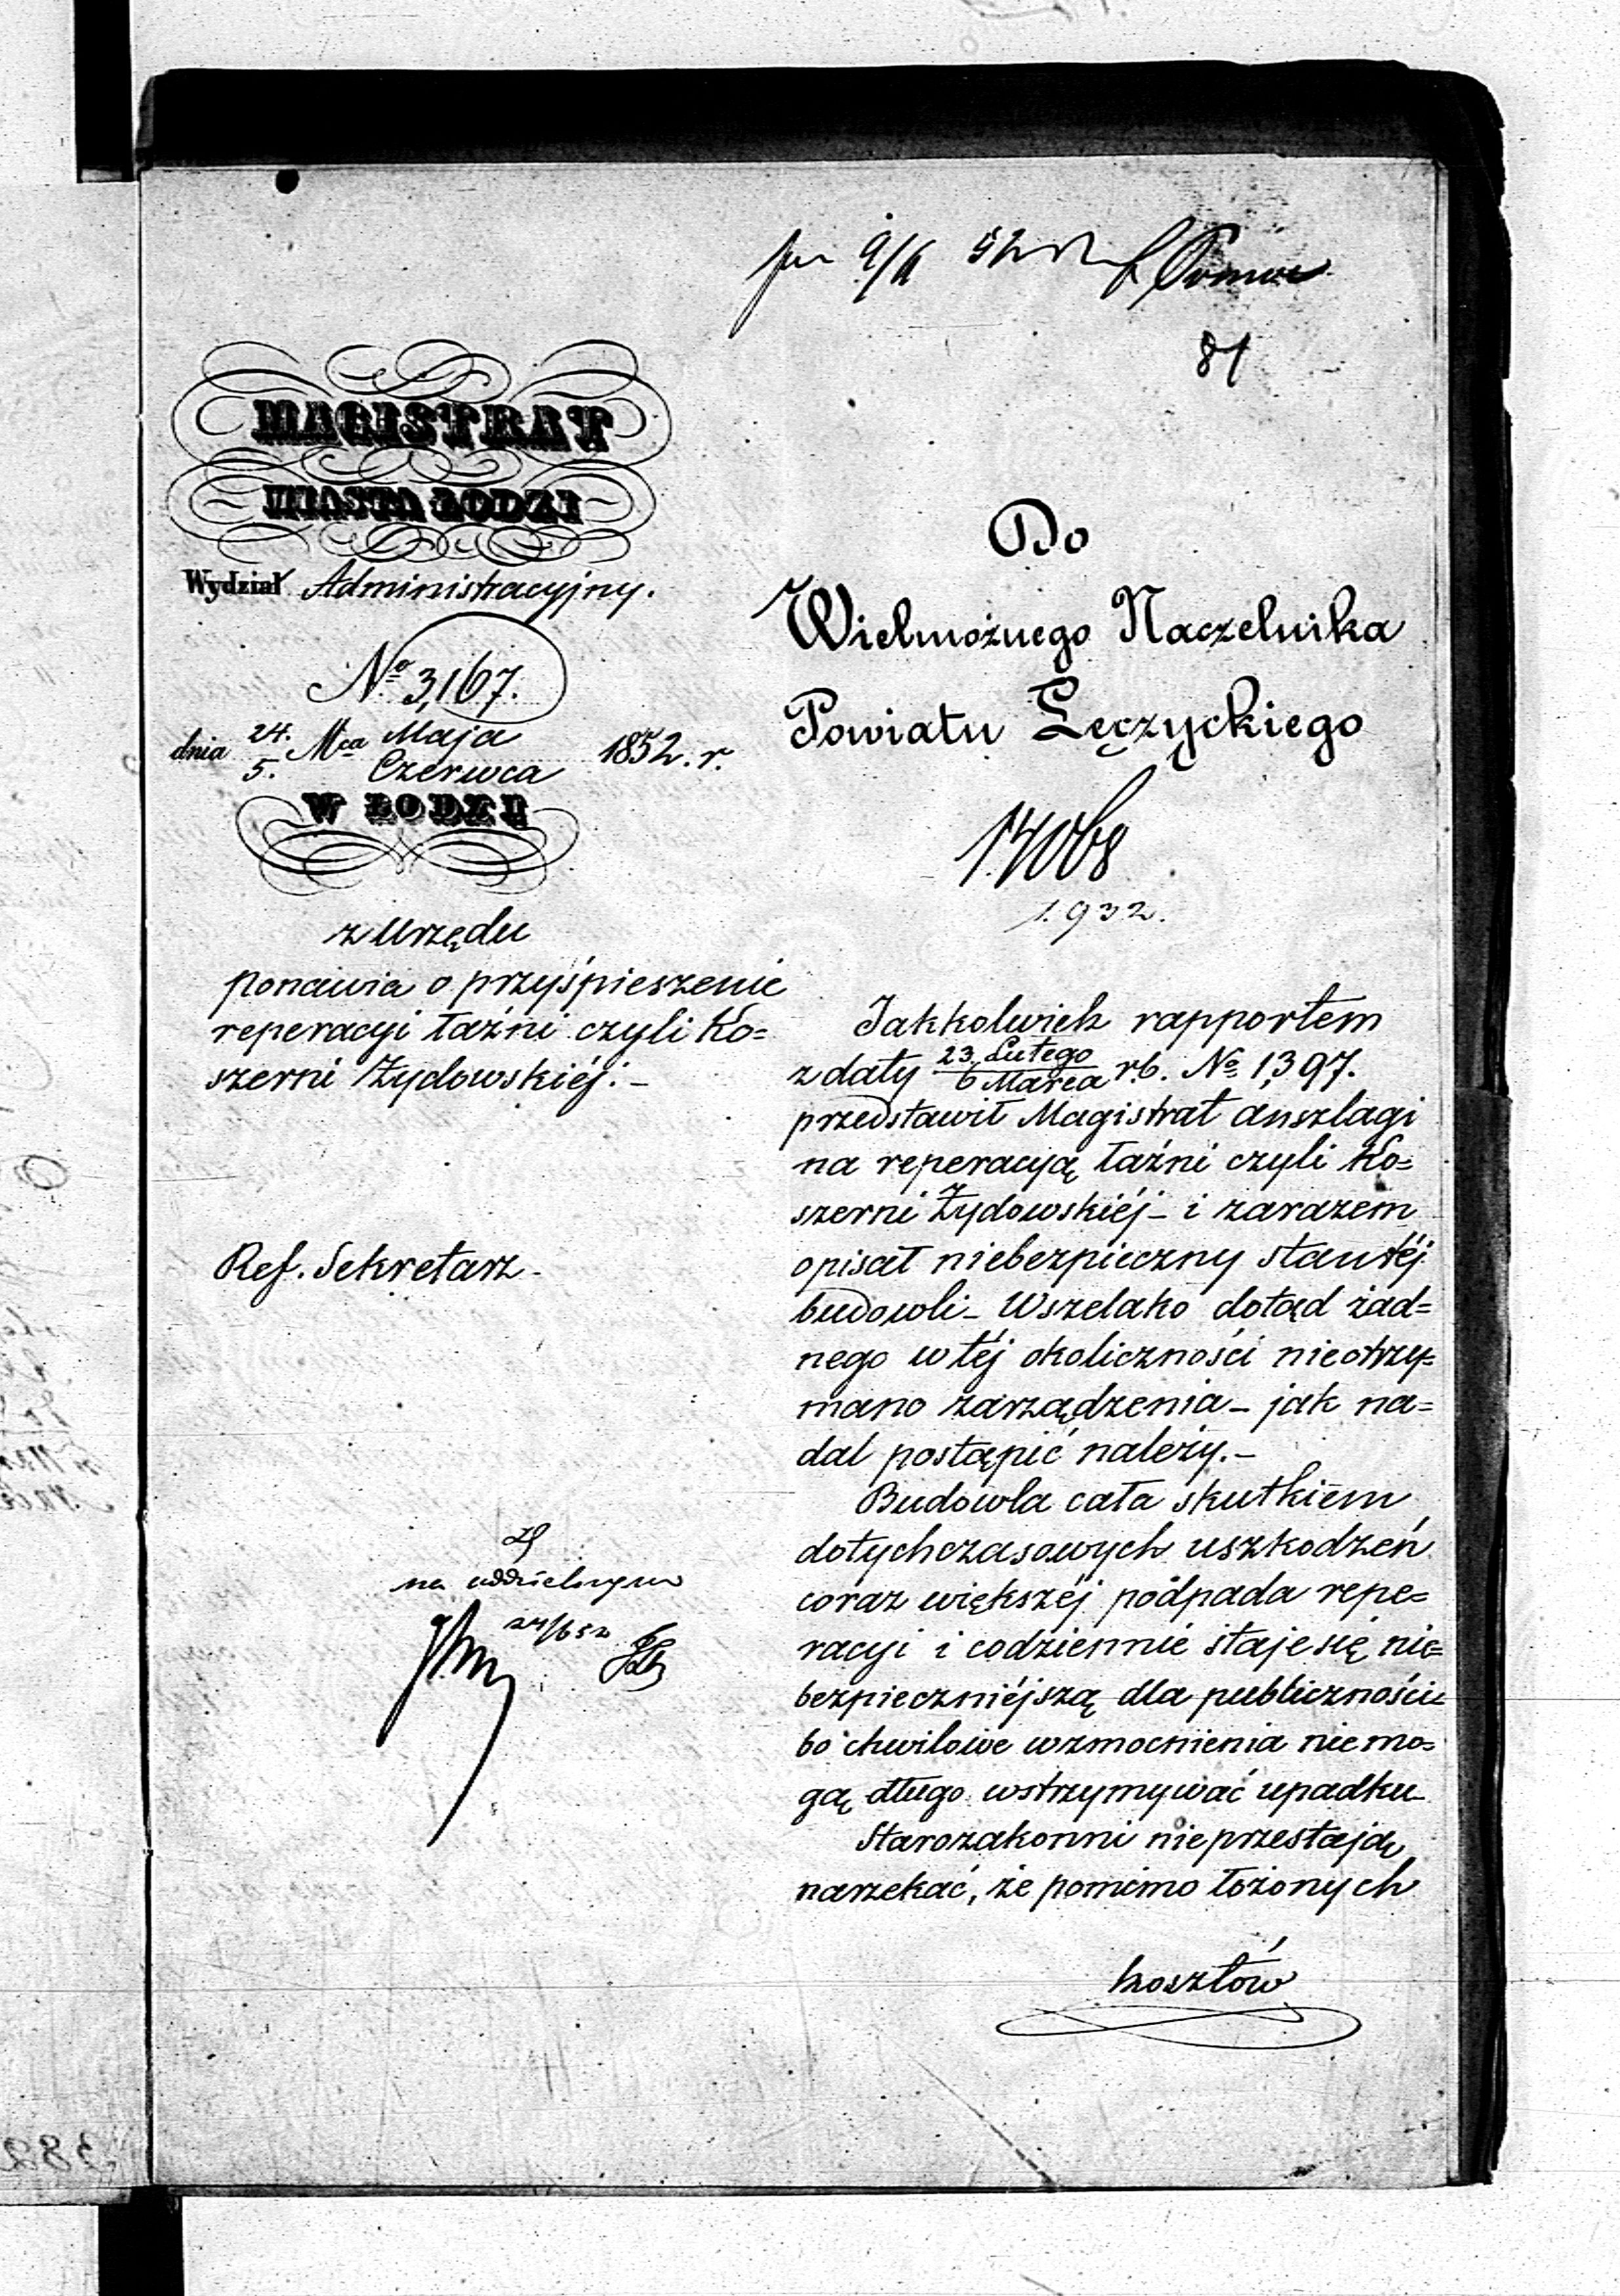 81
MAGISTRAT
MIASTA ŁODZI
Wydział Administracyjny.
No 3,167.
dnia 24./5. Mca Maja/Czerwca 1852. r.
W ŁODZI
z Urzędu
ponawia o przyśpieszenie
reperacyi łaźni czyli Ko=
szerni Żydowskiéj.–
Ref. Sekretarz
na oddzielnym
Do
Wielmożnego Naczelnika
Powiatu Łęczyckiego
1.932.
Jakkolwiek rapportem
z daty 23. Lutego/6 Marca r.b. No 1,397.
przedstawił Magistrat anszlagi
na reperacyją łaźni czyli Ko=
szerni Żydowskiéj – i zarazem
opisał niebezpieczny stan téj
budowli – Wszelako dotąd żad=
nego w téj okoliczności nieotrzy=
mano zarządzenia – jak na=
dal postąpić należy.–
Budowla cała skutkiem
dotychczasowych uszkodzeń
coraz większéj podpada repe=
racyi i codziennie staje się nie=
bezpieczniéjszą dla publiczności
bo chwilowe wzmocnienia niemo=
gą długo wstrzymywać upadku
Starozakonni nieprzestają
narzekać, że pomimo łożonych
kosztów